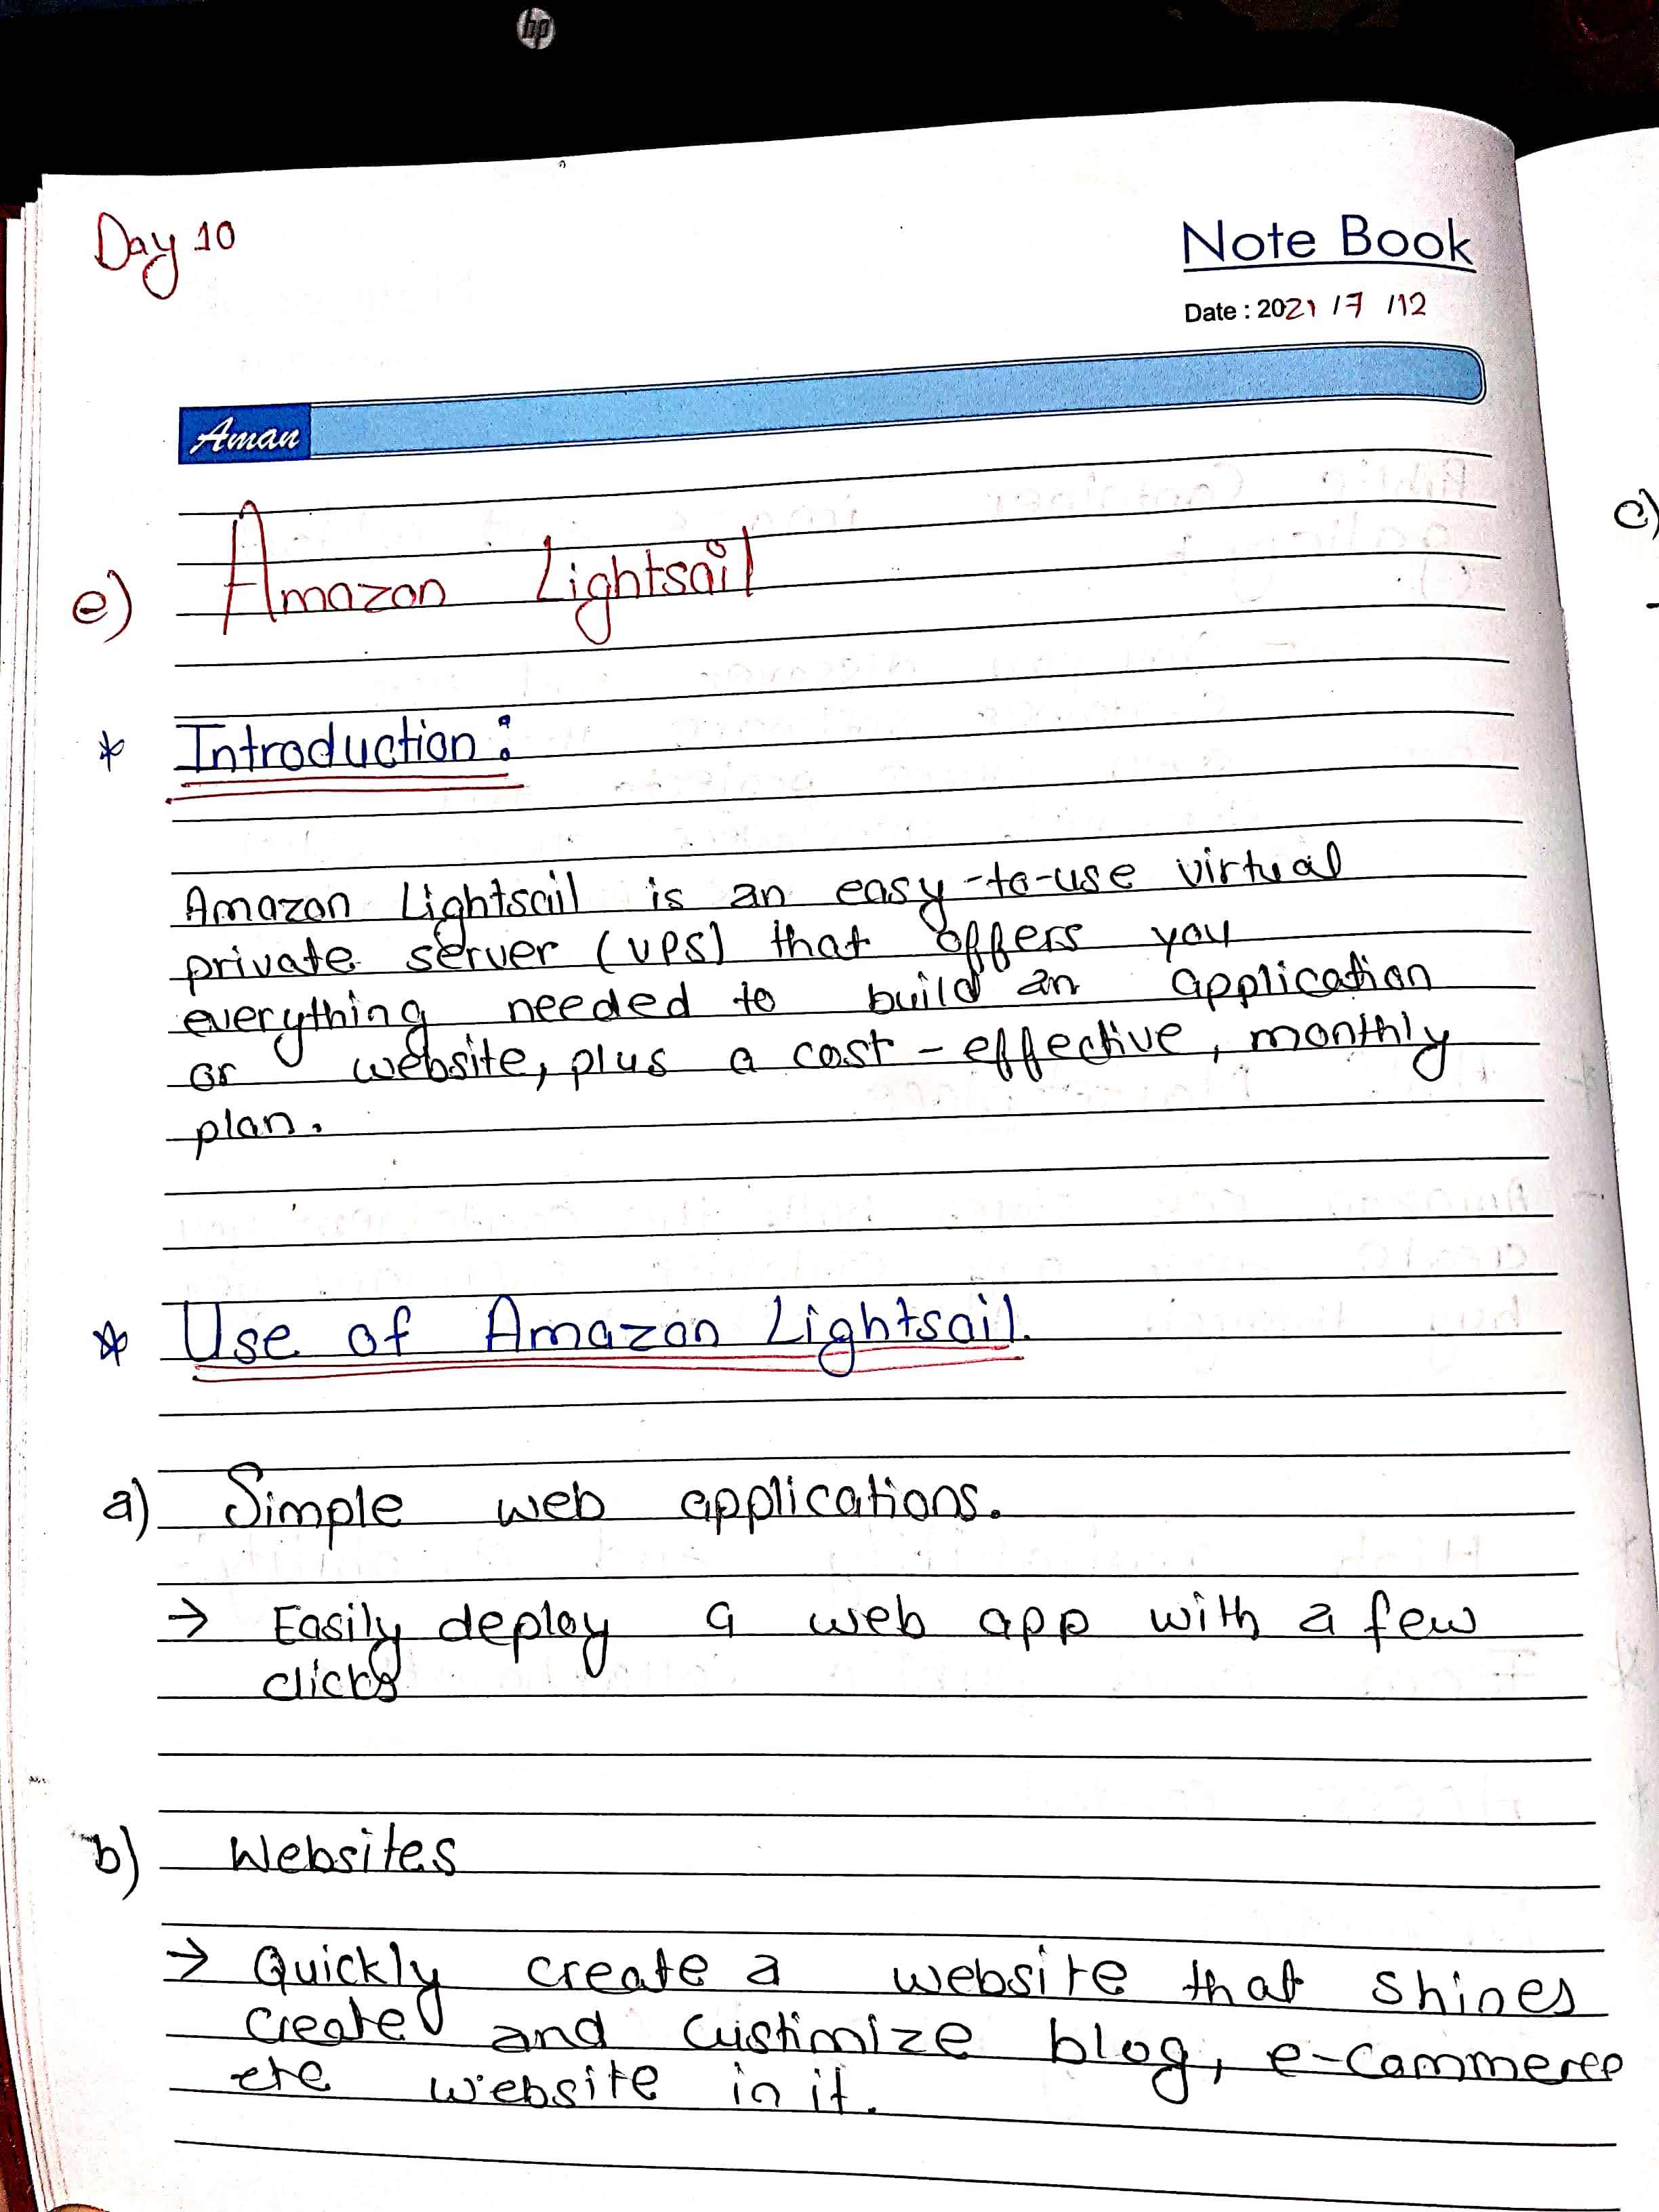 hp
Day 10
Note Book
Date : 2021 /7 /12
Aman
e) Amazon Lightsail
* Introduction:
Amazon Lightsail is an easy-to-use virtual
private server (VPS) that offers you
everything needed to build an application
or website, plus a cost-effective, monthly
plan.
* Use of Amazon Lightsail.
a) Simple web applications.
→ Easily deploy a web app with a few
clicks
b) Websites
→ Quickly create a website that shines
create and custimize blog, e-commerce
etc website in it.
c)